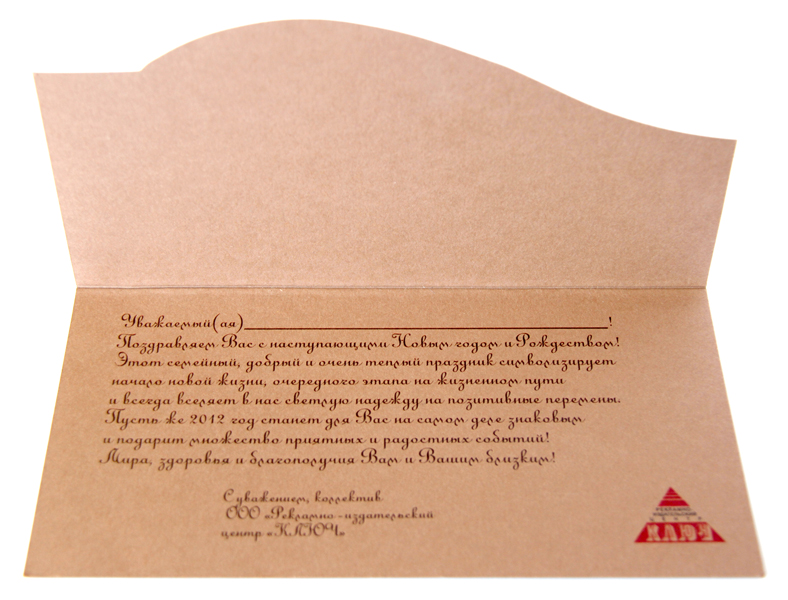 Уважаемый(ая)____________________!
Поздравляем Вас с наступающими Новым годом и Рождеством!
Этот семейный, добрый и очень теплый праздник символизирует
начало новой жизни, очередного этапа на жизненном пути
и всегда вселяет в нас светлую надежду на позитивные перемены.
Пусть же 2012 год станет для Вас на самом деле знаковым
и подарит множество приятных и радостных событий!
Мира, здоровья и благополучия Вам и Вашим близким!
С уважением, коллектив
ООО «Рекламно-издательский
центр «КЛЮЧ»
РЕКЛАМНО
ИЗДАТЕЛЬСКИЙ
ЦЕНТР
КЛЮЧ